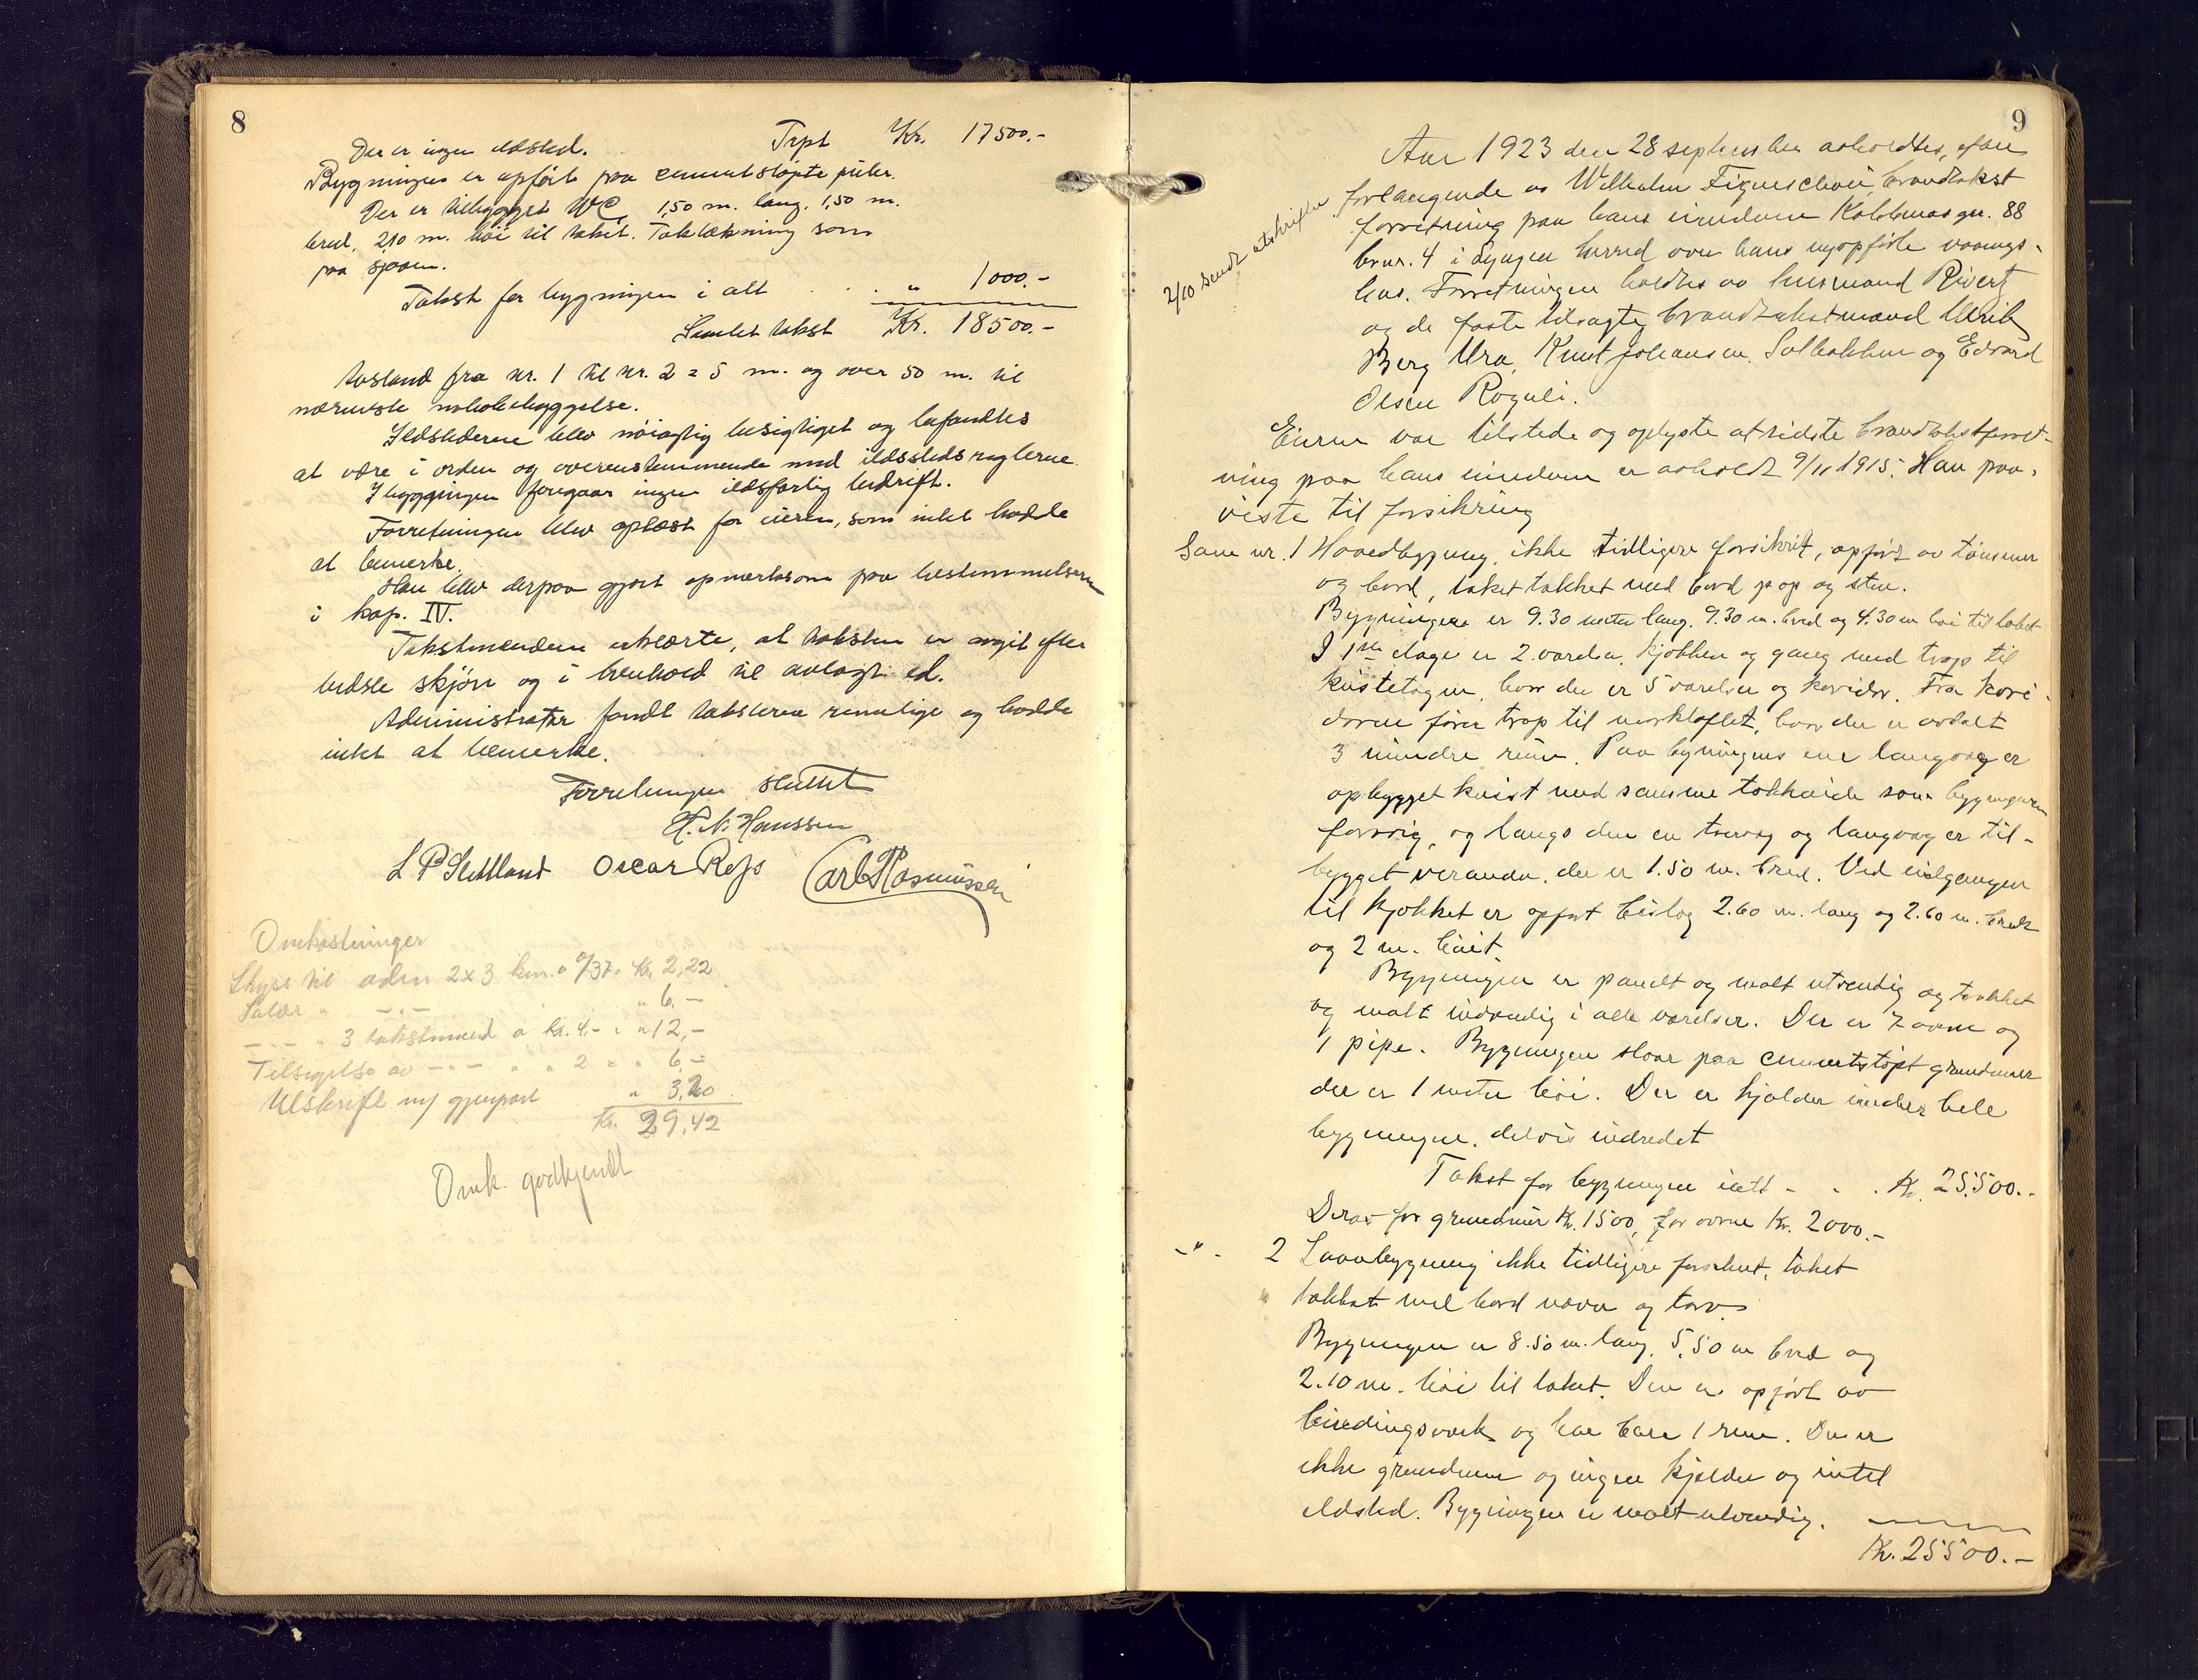 8
Trpt Kr. 17500.-
Der er ingen ildsted.
Bygningen er opført paa cementstøpte piler.
Der er tilbygget WC, 1,50 m. lang, 1,50 m.
bred, 2,10 m. høi til taket. Taktækning som
paa sjaaen.
Takst for bygningen i alt . . . " 1000.-
Samlet takst Kr. 18500.-
Avstand fra nr. 1 til nr. 2 = 5 m. og over 50 m. til
nærmeste nabobebyggelse.
Ildstederne blev nøiagtig besigtiget og befandtes
at være i orden og overensstemmende med ildstedsreglerne.
I bygningen foregaar ingen ildsfarlig bedrift.
Forretningen blev oplæst for eieren, som intet hadde
at bemerke.
Han blev derpaa gjort opmerksom paa bestemmelsern
i kap. IV.
Takstmændene erklærte, at taksten er avgit efter
bedste skjøn og i henhold til avlagt ed.
Administrator fandt taksterne rimelige og hadde
intet at bemerke.
Forretningen sluttet
H. N. Hanssen
L P Slettland Oscar Rejs Carl Rasmussen
Omkostninger
Skyss til adm 2x3 km. a 0/37 = Kr. 2,22
Salær " -"- " 6,-
-"- " 3 takstmænd a kr. 4,- = " 12,-
Tilsigelse av -"- " " 2 = " 6,-
Utskrift m/ gjenpart " 3,20
Kr. 29,42
Omk. godkjendt
9
2/10 sendt utskrifter.
Aar 1923 den 28 september avholdtes, efter
forlangende av Wilhelm Figenschou, brandtakst
forretning paa hans eiendom Kobbenes gnr. 88
brnr. 4 i Lyngen herred over hans nyopførte vaanings-
hus. Forretningen holdtes av lensmand Rivertz
og de faste tilsagte brandtakstmænd Ulrik
Berg Ura, Knut Johansen Solbakken og Edvard
Olsen Roguli.
Eieren var tilstede og oplyste at sidste brandtakstforret-
ning paa hans eiendom er avholdt 9/11 1915. Han paa-
viste til forsikring
Som nr. 1 Hovedbygning, ikke tidligere forsikrit, opført av tømmer
og bord, taket tækket med bord pap og sten.
Bygningen er 9.30 meter lang, 9.30 m. bred og 4.30 m høi til taket
I 1ste etage er 2 værelser, kjøkken og gang med trap til
kvistetagen, hvor der er 5 værelser og koridor. Fra kori-
doren fører trap til mørkloftet, hvor der er avdelt
3 mindre rum. Paa bygningens ene langvæg er
opbygget kvist med samme takhøide som bygningen
forøvrig, og langs den en tvervæg og langvæg er til-
bygget veranda, der er 1.50 m. bred. Ved indgangen
til kjøkket er opført bislag 2.60 m. lang og 2.60 m. bredt
og 2 m. høit.
Bygningen er panelt og malt utvendig og trækket
og malt indvendig i alle værelser. Der er 7 ovne og
1 pipe. Bygningen staar paa cementstøpt grundmur
der er 1 meter høi. Der er kjælder under hele
bygningen, delvis indredet
Takst for bygningen ialt - . . Kr. 25.500.-
Derav for grundmur Kr. 1500, for ovne Kr. 2000.-
-"- 2 Laavebygning ikke tidligere forsikret, taket
tækket med bord næver og torv.
Bygningen er 8.50 m. lang, 5,50 m bred og
2.10 m. høi til taket. Den er opført av
bindingsverk og har bare 1 rum. Der er
ikke grundmur og ingen kjælder og intet
ildsted. Bygningen er malt utvendig.
Kr. 25500.-